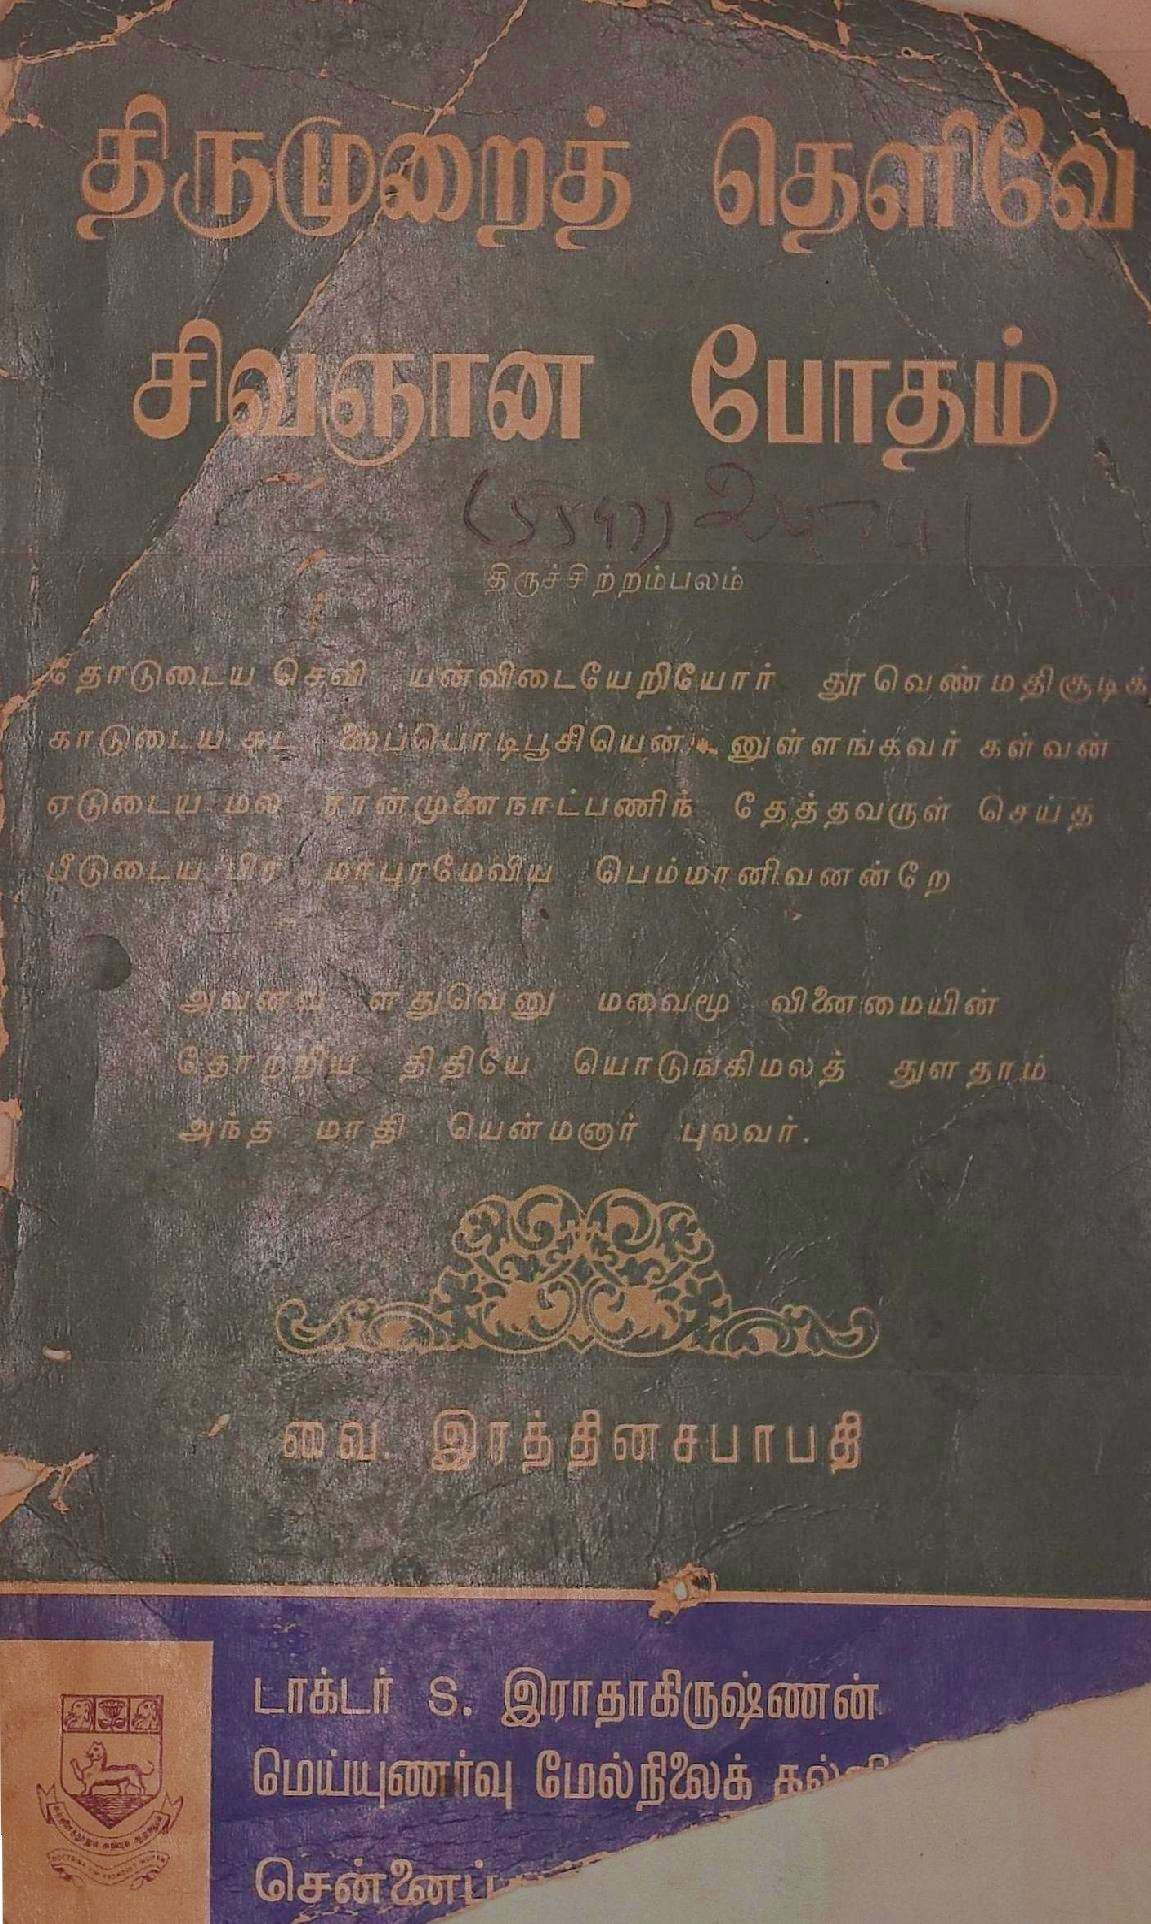 திருமுறைத் தெளிவே
சிவஞான போதம்
திருச்சிற்றம்பலம்
தோடுடைய செவி யன்விடையேறியோர் தூவெண்மதிசூடிக்
காடுடைய சுட லைப்பொடிபூசியென் னுள்ளங்கவர் கள்வன்
ஏடுடைய மல ரான்முனைநாட்பணிந் தேத்தவருள் செய்த
பீடுடைய பிர மாபுரமேவிய பெம்மானிவனன்றே
அவனவ ளதுவெனு மவைமூ வினைமையின்
தோற்றிய திதியே யொடுங்கிமலத் துளதாம்
அந்த மாதி யென்மனார் புலவர்.
வை. இரத்தினசபாபதி
டாக்டர் S. இராதாகிருஷ்ணன்
மெய்யுணர்வு மேல்நிலைக்